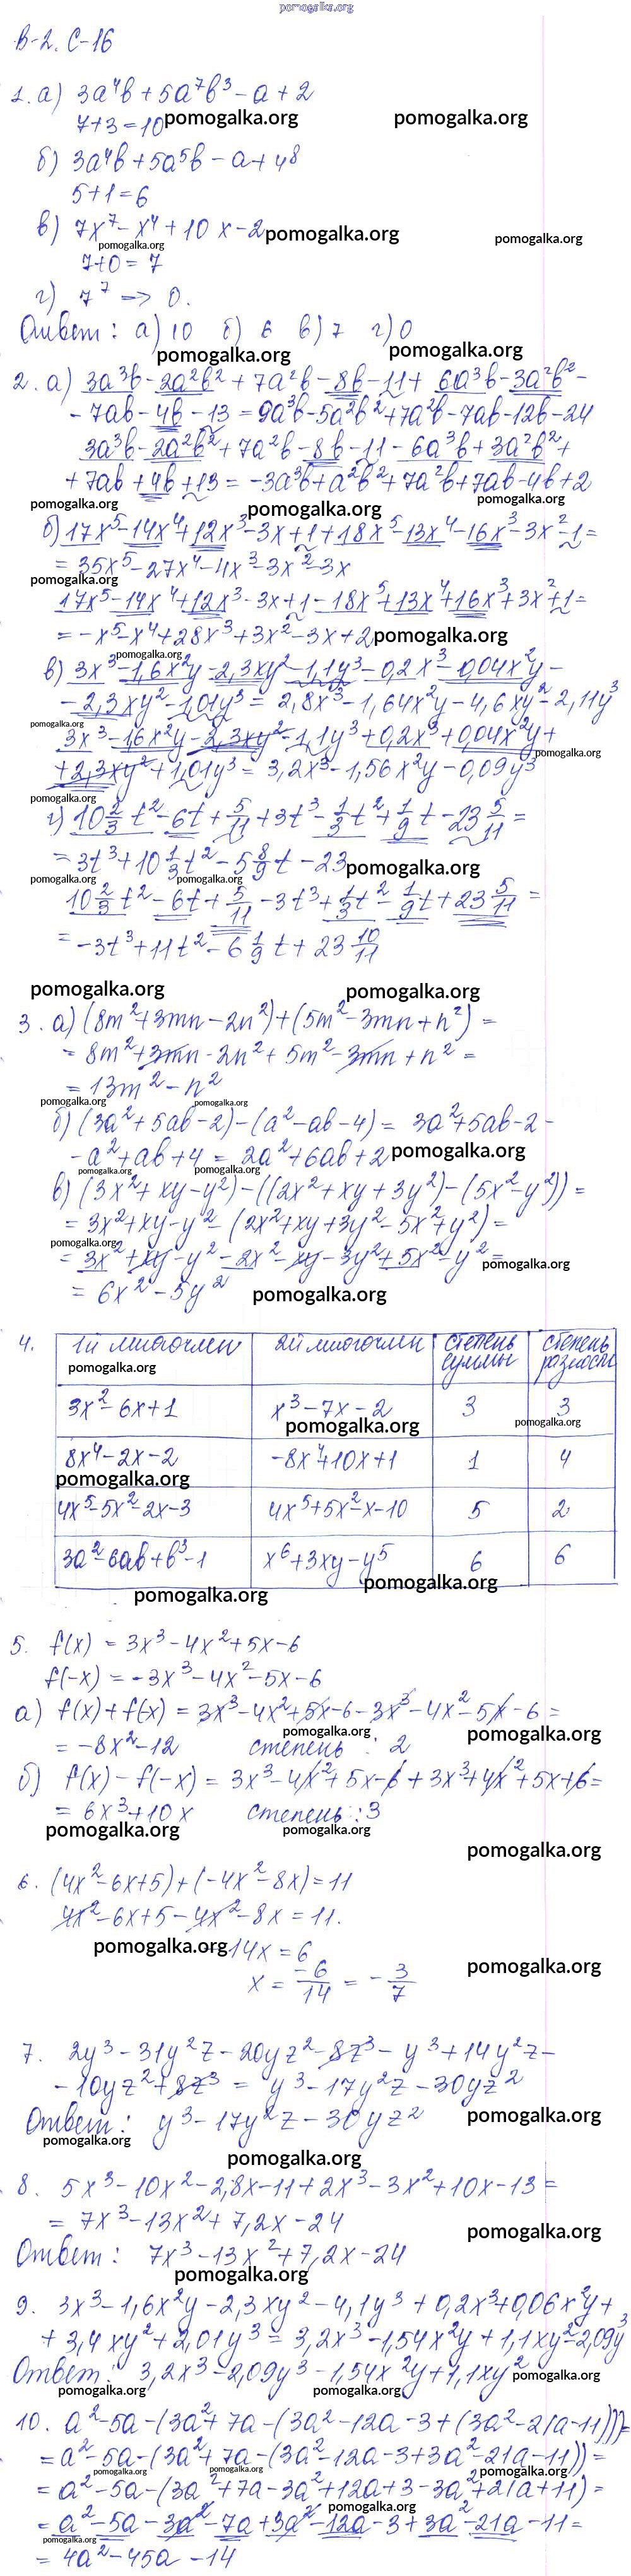 pomogalka.org
В-2. С-16
1. а) 3a⁴b + 5a⁷b³ - a + 2
7+3=10 pomogalka.org pomogalka.org
б) 3a⁴b + 5a⁵b - a + 4⁸
5+1=6
в) 7x⁷ - x⁴ + 10x - 2 pomogalka.org pomogalka.org
pomogalka.org
7+0=7
г) 7⁷ => 0.
Ответ: а) 10 б) 6 в) 7 г) 0
pomogalka.org pomogalka.org
2. а) 3a³b - 2a²b² + 7a²b - 8b - 11 + 6a³b - 3a²b² -
- 7ab - 4b - 13 = 9a³b - 5a²b² + 7a²b - 7ab - 12b - 24
3a³b - 2a²b² + 7a²b - 8b - 11 - 6a³b + 3a²b² +
+ 7ab + 4b + 13 = -3a³b + a²b² + 7a²b + 7ab - 4b + 2
pomogalka.org pomogalka.org pomogalka.org
б) 17x⁵ - 14x⁴ + 12x³ - 3x + 1 + 18x⁵ - 13x⁴ - 16x³ - 3x² - 1 =
= 35x⁵ - 27x⁴ - 4x³ - 3x² - 3x
pomogalka.org
17x⁵ - 14x⁴ + 12x³ - 3x + 1 - 18x⁵ + 13x⁴ + 16x³ + 3x² + 1 =
= -x⁵ - x⁴ + 28x³ + 3x² - 3x + 2 pomogalka.org
pomogalka.org
в) 3x³ - 1,6x²y - 2,3xy² - 1,1y³ - 0,2x³ - 0,04x²y -
- 2,3xy² - 1,01y³ = 2,8x³ - 1,64x²y - 4,6xy² - 2,11y³
pomogalka.org
3x³ - 1,6x²y - 2,3xy² - 1,1y³ + 0,2x³ + 0,04x²y +
pomogalka.org
+ 2,3xy² + 1,01y³ = 3,2x³ - 1,56x²y - 0,09y³
pomogalka.org
г) 10 2/3 t² - 6t + 5/11 + 3t³ - 1/3 t² + 1/9 t - 23 5/11 =
= 3t³ + 10 1/3 t² - 5 8/9 t - 23 pomogalka.org
pomogalka.org pomogalka.org
10 2/3 t² - 6t + 5/11 - 3t³ + 1/3 t² - 1/9 t + 23 5/11 =
= -3t³ + 11t² - 6 1/9 t + 23 10/11
pomogalka.org pomogalka.org
3. а) (8m² + 3mn - 2n²) + (5m² - 3mn + n²) =
= 8m² + 3mn - 2n² + 5m² - 3mn + n² =
= 13m² - n²
pomogalka.org pomogalka.org
б) (3a² + 5ab - 2) - (a² - ab - 4) = 3a² + 5ab - 2 -
- a² + ab + 4 = 2a² + 6ab + 2 pomogalka.org
pomogalka.org pomogalka.org
в) (3x² + xy - y²) - ((2x² + xy + 3y²) - (5x² - y²)) =
= 3x² + xy - y² - (2x² + xy + 3y² - 5x² + y²) =
pomogalka.org
= 3x² + xy - y² - 2x² - xy - 3y² + 5x² - y² =
pomogalka.org
= 6x² - 5y² pomogalka.org
4. 1й многочлен 2й многочлен степень суммы степень разности
pomogalka.org
3x² - 6x + 1 x³ - 7x - 2 3 3
pomogalka.org pomogalka.org
8x⁴ - 2x - 2 -8x⁴ + 10x + 1 1 4
pomogalka.org
4x⁵ - 5x² - 2x - 3 4x⁵ + 5x² - x - 10 5 2
3a² - 6ab + b³ - 1 x⁶ + 3xy - y⁵ 6 6
pomogalka.org pomogalka.org
5. f(x) = 3x³ - 4x² + 5x - 6
f(-x) = -3x³ - 4x² - 5x - 6
а) f(x) + f(-x) = 3x³ - 4x² + 5x - 6 - 3x³ - 4x² - 5x - 6 =
pomogalka.org pomogalka.org
= -8x² - 12 степень : 2
б) f(x) - f(-x) = 3x³ - 4x² + 5x - 6 + 3x³ + 4x² + 5x + 6 =
= 6x³ + 10x степень : 3
pomogalka.org pomogalka.org
pomogalka.org
6. (4x² - 6x + 5) + (-4x² - 8x) = 11
4x² - 6x + 5 - 4x² - 8x = 11.
pomogalka.org - 14x = 6
x = -6/14 = - 3/7 pomogalka.org
7. 2y³ - 31y²z - 20yz² - 8z³ - y³ + 14y²z -
- 10yz² + 8z³ = y³ - 17y²z - 30yz²
Ответ: y³ - 17y²z - 30yz² pomogalka.org
pomogalka.org
pomogalka.org
8. 5x³ - 10x² - 2,8x - 11 + 2x³ - 3x² + 10x - 13 =
= 7x³ - 13x² + 7,2x - 24 pomogalka.org
Ответ: 7x³ - 13x² + 7,2x - 24
pomogalka.org
9. 3x³ - 1,6x²y - 2,3xy² - 4,1y³ + 0,2x³ + 0,06x²y +
+ 3,4xy² + 2,01y³ = 3,2x³ - 1,54x²y + 1,1xy² - 2,09y³
Ответ: 3,2x³ - 2,09y³ - 1,54x²y + 1,1xy² pomogalka.org
pomogalka.org pomogalka.org
10. a² - 5a - (3a² + 7a - (3a² - 12a - 3 + (3a² - 21a - 11))) =
= a² - 5a - (3a² + 7a - (3a² - 12a - 3 + 3a² - 21a - 11)) =
pomogalka.org pomogalka.org pomogalka.org
= a² - 5a - (3a² + 7a - 3a² + 12a + 3 - 3a² + 21a + 11) =
pomogalka.org
= a² - 5a - 3a² - 7a + 3a² - 12a - 3 + 3a² - 21a - 11 =
pomogalka.org
= 4a² - 45a - 14